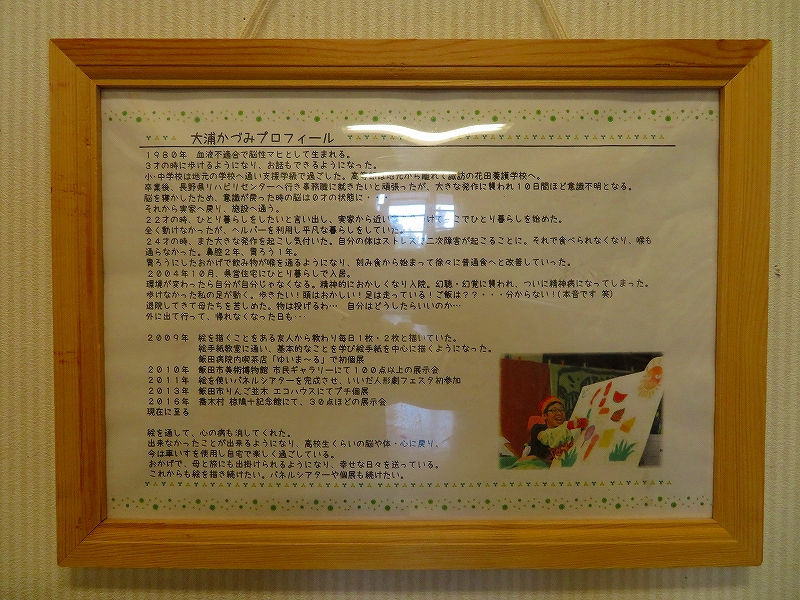 大浦かづみプロフィール
1980年 血液不適合で脳性マヒとして生まれる。
3才の時に歩けるようになり、お話もできるようになった。
小・中学校は地元の学校へ通い支援学級で過ごした。高等部は地元から離れて諏訪の花田養護学校へ。
卒業後、長野県リハビリセンターへ行き事務職に就きたいと頑張ったが、大きな発作に襲われ10日間ほど意識不明となる。
脳を寝かしたため、意識が戻った時の脳は0才の状態に・
それから実家へ戻り、施設へ通う。
22才の時、ひとり暮らしをしたいと言い出し、実家から近い でひとり暮らしを始めた。
全く動けなかったが、ヘルパーを利用し平凡な暮らしをしていた。
24才の時、また大きな発作を起こし気付いた。自分の体はストレスは二次障害が起こることに。それで食べられなくなり、喉も
通らなかった。鼻腔2年、胃ろう1年。
胃ろうにしたおかげで飲み物が喉を通るようになり、刻み食から始まって徐々に普通食へと改善していった。
2004年10月、県営住宅にひとり暮らしで入居。
環境が変わったら自分が自分じゃなくなる。精神的におかしくなり入院。幻聴・幻覚に襲われ、ついに精神病になってしまった。
歩けなかった私の足が動く。歩きたい！頭はおかしい！足は走っている！ご飯は？？・・・分からない！(本音です 笑)
退院してきて母たちを苦しめた。物は投げるわ… 自分はどうしたらいいのか…
外に出て行って、帰れなくなった日も・・・
2009年 絵を描くことをある友人から教わり毎日1枚・2枚と描いていた。
絵手紙教室に通い、基本的なことを学び絵手紙を中心に描くようになった。
飯田病院内喫茶店「ゆいま～る」で初個展
2010年 飯田市美術博物館 市民ギャラリーにて100点以上の展示会
2011年 絵を使いパネルシアターを完成させ、いいだ人形劇フェスタ初参加
2013年 飯田市りんご並木 エコハウスにてプチ個展
2016年 喬木村 椋鳩十記念館にて、30点ほどの展示会
現在に至る
絵を通して、心の病も消してくれた。
出来なかったことが出来るようになり、高校生くらいの脳や体・心に戻り、
今は車いすを使用し自宅で楽しく過ごしている。
おかげで、母と旅にも出掛けられるようになり、幸せな日々を送っている。
これからも絵を描き続けたい。パネルシアターや個展も続けたい。